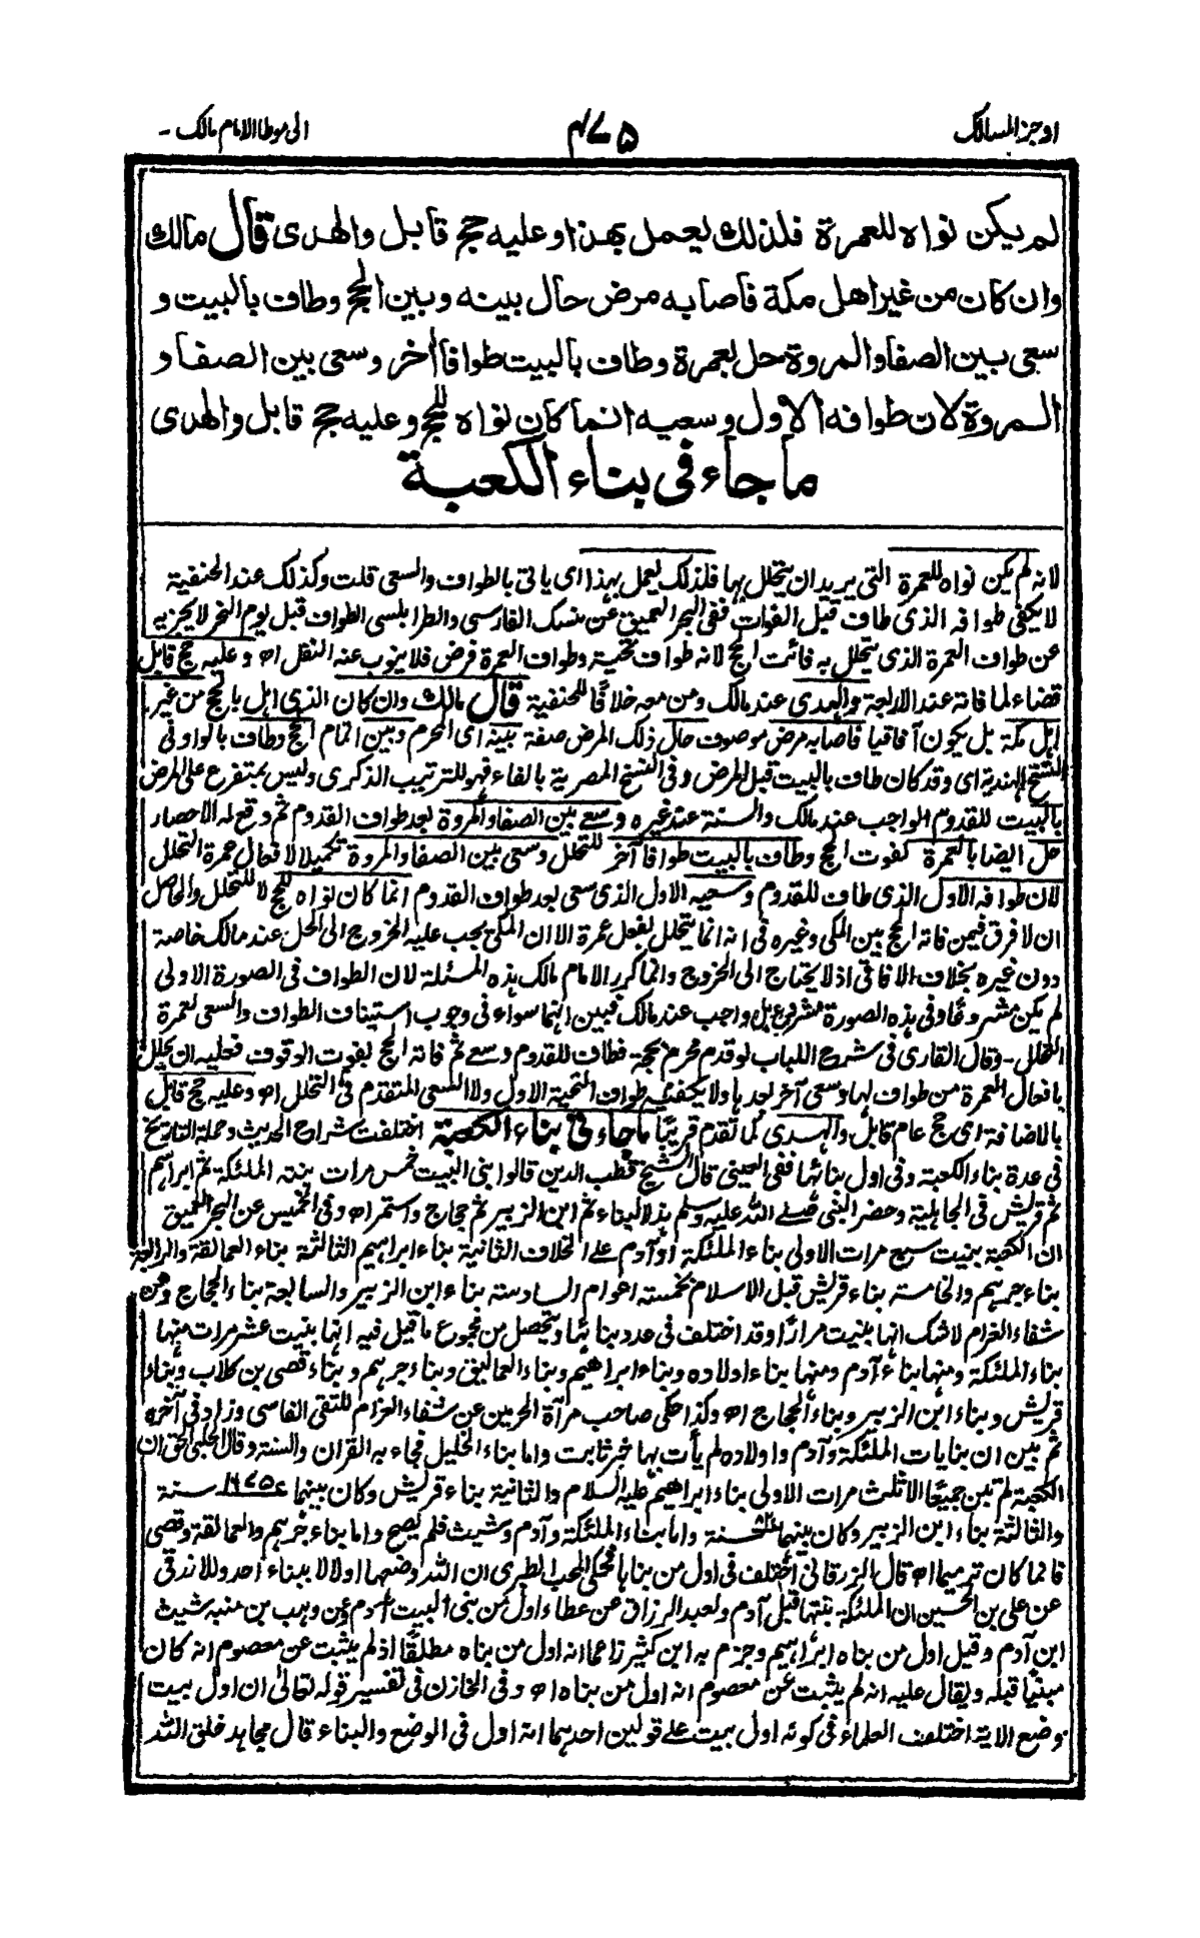 اوجز المسالك
٤٧٥
الى موطا الامام مالك -
لم يكن نواه للعمرة فلذلك يعمل بهذا وعليه حج قابل والهدى قال مالك
وان كان من غير اهل مكة فاصابه مرض حال بينه وبين الحج وطاف بالبيت و
سعى بين الصفا والمروة حل بعمرة وطاف بالبيت طوافا أخر وسعى بين الصفا و
المروة لان طوافه الاول وسعيه انما كان نواه للحج وعليه حج قابل والهدى
ما جاء فى بناء الكعبة
لانه لم يكن نواه للعمرة التى يريد ان يتحلل بها فلذلك يعمل بهذا اى ياتى بالطواف والسعى قلت وكذلك عند الحنفية
لا يكفى طوافه الذى طاف قبل الفوات ففى البحر العميق عن منسك الفارسى والطرابلسى الطواف قبل يوم النحر لا يجزيه
عن طواف العمرة الذى يتحلل به فائت الحج لانه طواف تحية وطواف العمرة فرض فلا ينوب عنه النفل اه وعليه حج قابل
قضاء لما فاته عند الاربعة والهدى عند مالك ومن معه خلافًا للحنفية قال مالك وان كان الذى اهل بالحج من غير
اهل مكة بل يكون آفاقيا فاصابه مرض موصوف حال ذلك المرض صفة بينه اى المحرم وبين اتمام الحج وطاف بالواو فى
النسخ الهندية اى وقد كان طاف بالبيت قبل المرض وفى النسخ المصرية بالفاء فهو للترتيب الذكرى وليس بمتفرع على المرض
بالبيت للقدوم الواجب عند مالك والسنة عند غيره وسعى بين الصفا والمروة بعد طواف القدوم ثم وقع له الاحصار
حل ايضا بالعمرة لفوت الحج وطاف بالبيت طوافا آخر للتحلل وسعى بين الصفا والمروة تكميلا لافعال عمرة التحلل
لان طوافه الاول الذى طاف للقدوم وسعيه الاول الذى سعى بعد طواف القدوم انما كان نواه للحج لا للتحلل والحاصل
ان لا فرق فيمن فاته الحج بين المكى وغيره فى انه انما يتحلل بفعل عمرة الا ان المكى يجب عليه الخروج الى الحل عند مالك خاصة
دون غيره بخلاف الآفاقى اذ لا يحتاج الى الخروج وانما كرر الامام مالك هذه المسئلة لان الطواف فى الصورة الاولى
لم يكن مشروعًا وفى هذه الصورة مشروع بل واجب عند مالك فبين انهما سواء فى وجوب استيناف الطواف والسعى لعمرة
التحلل - وقال القارى فى شرح اللباب لو قدم محرم بحجة فطاف للقدوم وسعى ثم فاته الحج بفوت الوقوف فعليه ان يحلل
بافعال العمرة من طواف لها وسعى آخر بعدها ولا يكفيه طواف التحية الاول ولا السعى المتقدم فى التحلل اه وعليه حج قابل
بالاضافة اى حج عام قابل والهدى كما تقدم قريبًا ما جاء فى بناء الكعبة اختلفت شراح الحديث وحملة التاريخ
فى عدة بناء الكعبة وفى اول بنائها ففى العينى قال الشيخ قطب الدين قالوا بنى البيت خمس مرات بنته الملئكة ثم ابراهيم
ثم قريش فى الجاهلية وحضر النبى صلى الله عليه وسلم هذا البناء ثم ابن الزبير ثم حجاج واستمر اه وفى الخميس عن البحر العميق
ان الكعبة بنيت سبع مرات الاولى بناء الملئكة او آدم على الخلاف الثانية بناء ابراهيم الثالثة بناء العمالقة والرابعة
بناء جرهم والخامسة بناء قريش قبل الاسلام بخمسة اعوام السادسة بناء ابن الزبير والسابعة بناء الحجاج وعن
شفاء الغرام لا شك انها بنيت مرارًا وقد اختلف فى عدد بنائها ويتحصل من مجموع ما قيل فيه انها بنيت عشر مرات منها
بناء الملئكة ومنها بناء آدم ومنها بناء اولاده وبناء ابراهيم وبناء العماليق وبناء جرهم وبناء قصى بن كلاب وبناء
قريش وبناء ابن الزبير وبناء الحجاج اه وكذا حكى صاحب مرآة الحرمين عن شفاء الغرام للتقى الفاسى وزاد فى آخره
ثم بين ان بنايات الملئكة وآدم واولاده لم يأت بها خبر ثابت واما بناء الخليل فجاء به القرآن والسنة وقال الحلبى الحق ان
الكعبة لم تبن جميعًا الا ثلث مرات الاولى بناء ابراهيم عليه السلام والثانية بناء قريش وكان بينهما سنة
والثالثة بناء ابن الزبير وكان بينهما سنة واما بناء الملئكة وآدم وشيث فلم يصح واما بناء جرهم والعمالقة وقصى
فانما كان ترميما اه قال الزرقانى أختلف فى اول من بناها فحكى المحب الطبرى ان الله وضعها اولا لا ببناء احد وللازرقى
عن على بن الحسين ان الملئكة بنتها قبل آدم ولعبد الرزاق عن عطاء اول من بنى البيت آدم وعن وهب بن منبه شيث
ابن آدم وقيل اول من بناه ابراهيم وجزم به ابن كثير زاعما انه اول من بناه مطلقًا اذ لم يثبت عن معصوم انه كان
مبنيًا قبله ويقال عليه انه لم يثبت عن معصوم انه اول من بناه اه وفى الخازن فى تفسير قوله تعالى ان اول بيت
وضع الاية اختلف العلماء فى كونه اول بيت على قولين احدهما انه اول فى الوضع والبناء قال مجاهد خلق الله